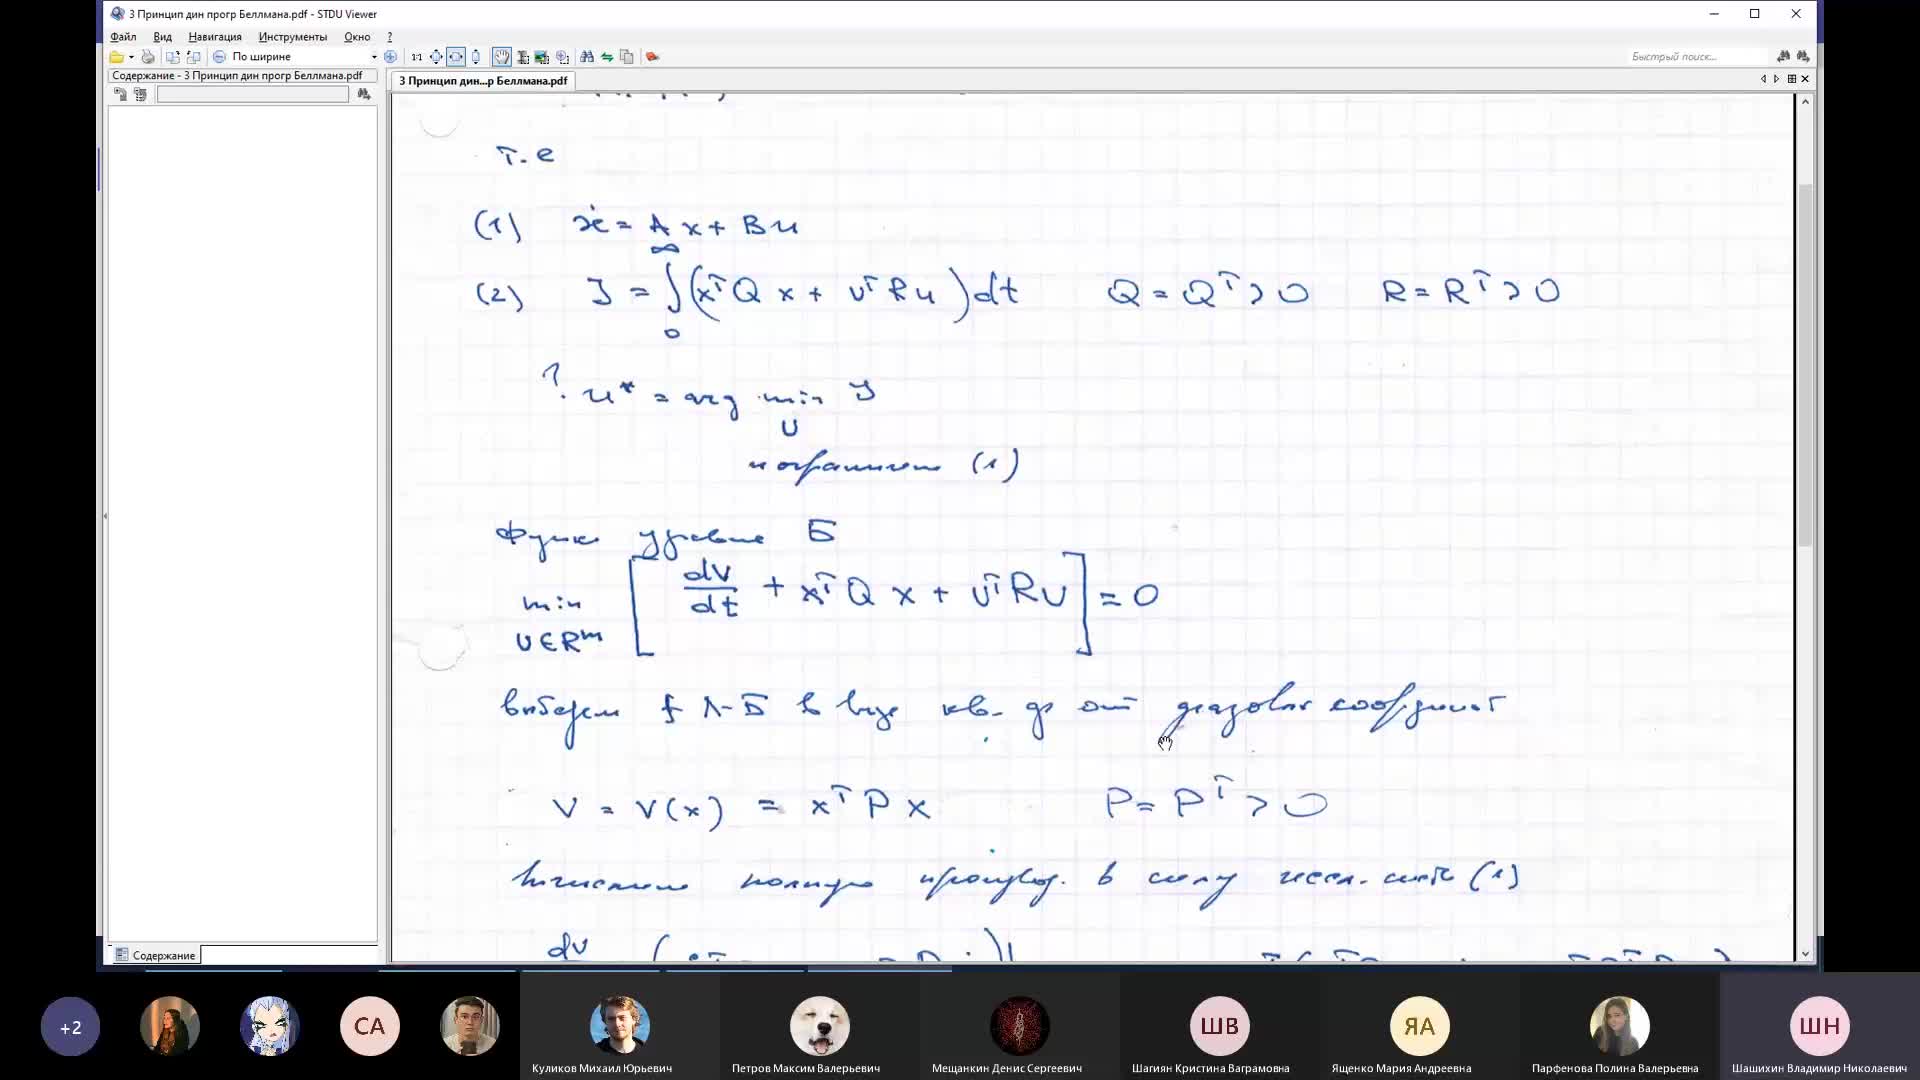 3 Принцип дин прогр Беллмана.pdf - STDU Viewer
Файл Вид Навигация Инструменты Окно ?
1:1 По ширине Быстрый поиск...
Содержание - 3 Принцип дин прогр Беллмана.pdf
3 Принцип дин...р Беллмана.pdf
т.е
(1) ẋ = Ax + Bu
(2) J = ∫₀^∞ (xᵀQx + uᵀRu)dt Q = Qᵀ > 0 R = Rᵀ > 0
? u* = arg min J
U
(1)
Функ уравнение Б
min [ dV/dt + xᵀQx + UᵀRU ] = 0
U∈Rᵐ
выберем f Л-Б в виде кв. ф от фазовых координат
V = V(x) = xᵀPx P = Pᵀ > 0
Вычислим полную производ. в силу сист (1)
dv
Содержание
+2
СА
ШВ
ЯА
ШН
Куликов Михаил Юрьевич
Петров Максим Валерьевич
Мещанкин Денис Сергеевич
Шагиян Кристина Ваграмовна
Ященко Мария Андреевна
Парфенова Полина Валерьевна
Шашихин Владимир Николаевич